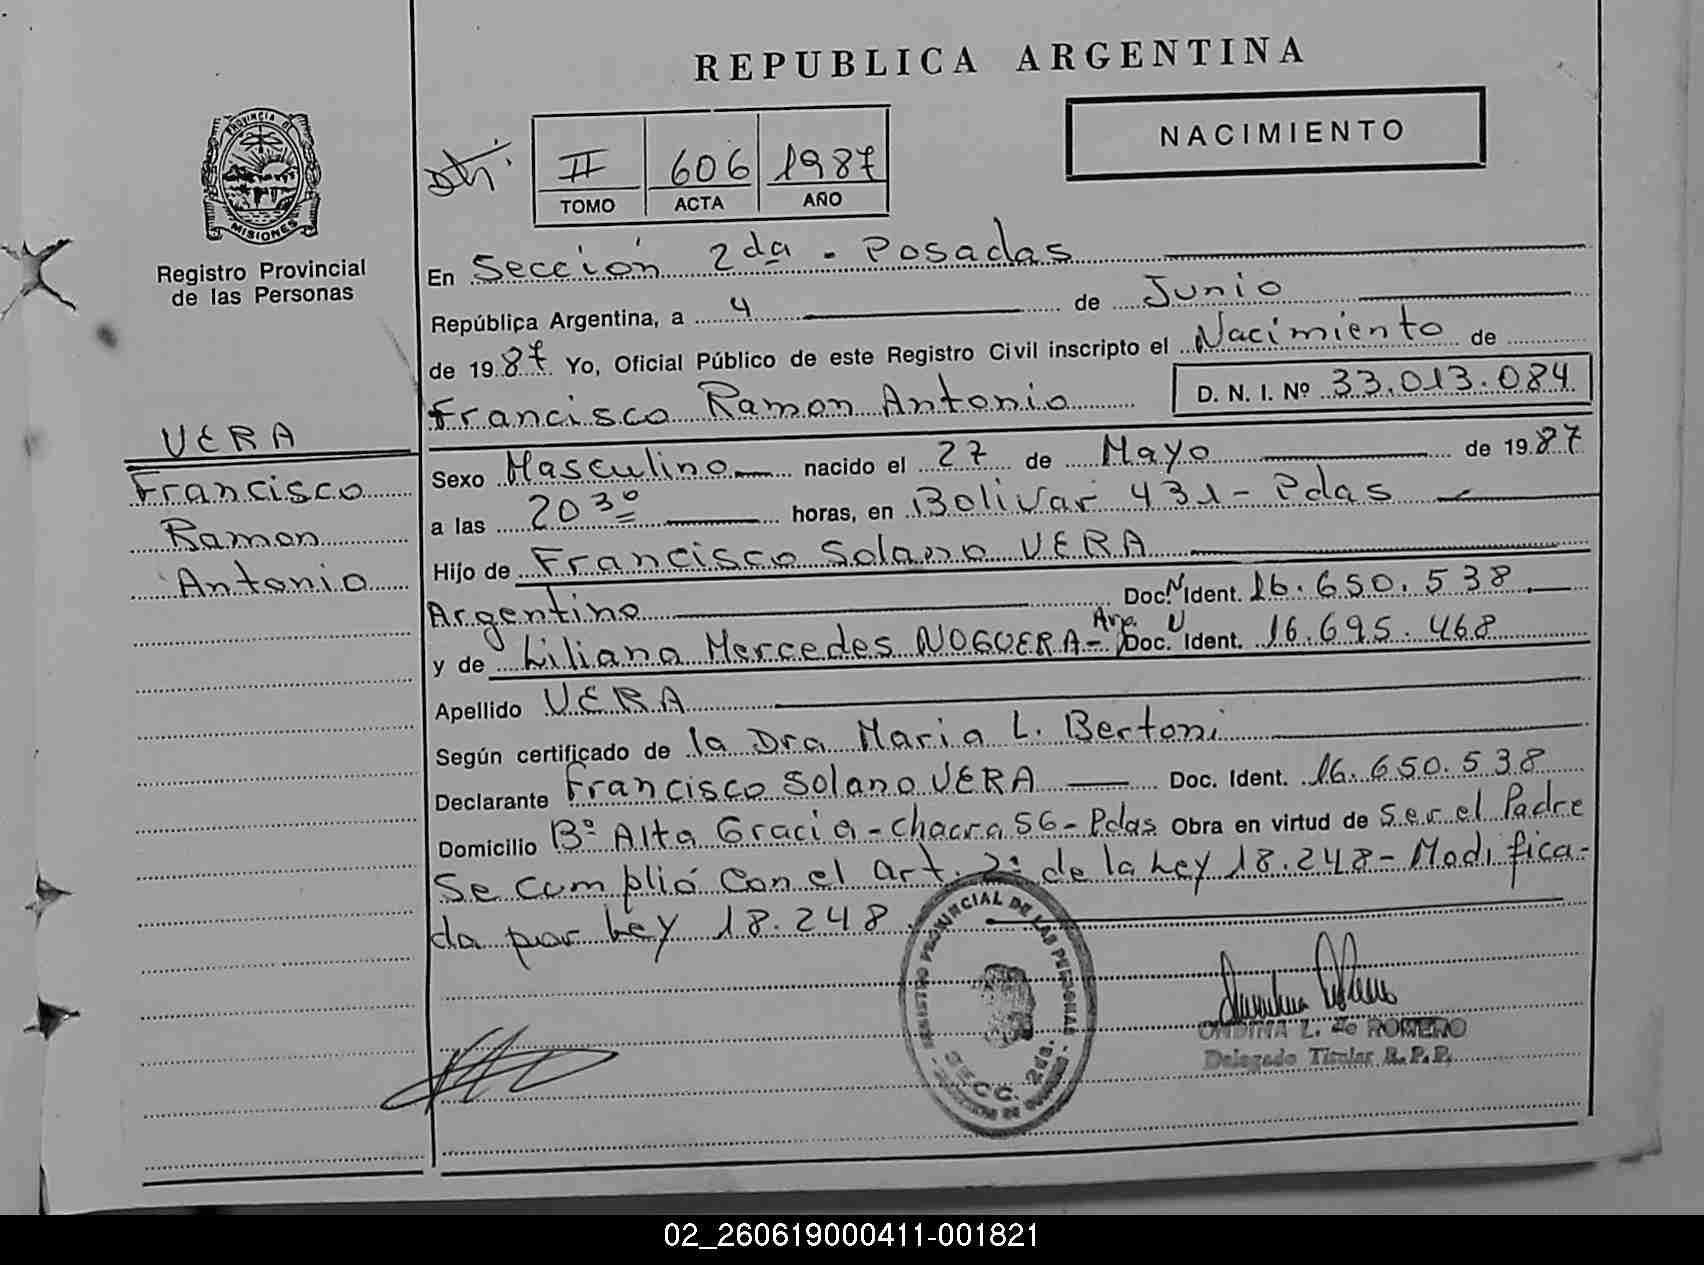 REPUBLICA ARGENTINA
NACIMIENTO
II 606 1987
TOMO ACTA AÑO
PROVINCIA DE MISIONES
Registro Provincial
de las Personas
VERA
Francisco
Ramon
Antonio
En Sección 2da - Posadas
República Argentina, a 4 de Junio
de 1987 Yo, Oficial Público de este Registro Civil inscripto el Nacimiento de
Francisco Ramon Antonio D. N. I. Nº 33.013.084
Sexo Masculino nacido el 27 de Mayo de 1987
a las 20 30 horas, en Bolivar 431 - Pdas
Hijo de Francisco Solano VERA
Argentino Doc. N Ident. 16.650.538
y de Liliana Mercedes NOGUERA - Arg. Doc. U Ident. 16.695.468
Apellido VERA
Según certificado de la Dra Maria L. Bertoni
Declarante Francisco Solano VERA Doc. Ident. 16.650.538
Domicilio Bº Alta Gracia - chacra 56 - Pdas Obra en virtud de Ser el Padre
Se cumplió con el art. 2º de la Ley 18.248 - Modifica-
da por Ley 18.248
REGISTRO PROVINCIAL DE LAS PERSONAS
SECC. 2da.
ONDINA L. de ROMERO
Delegado Titular R.P.P.
02_260619000411-001821